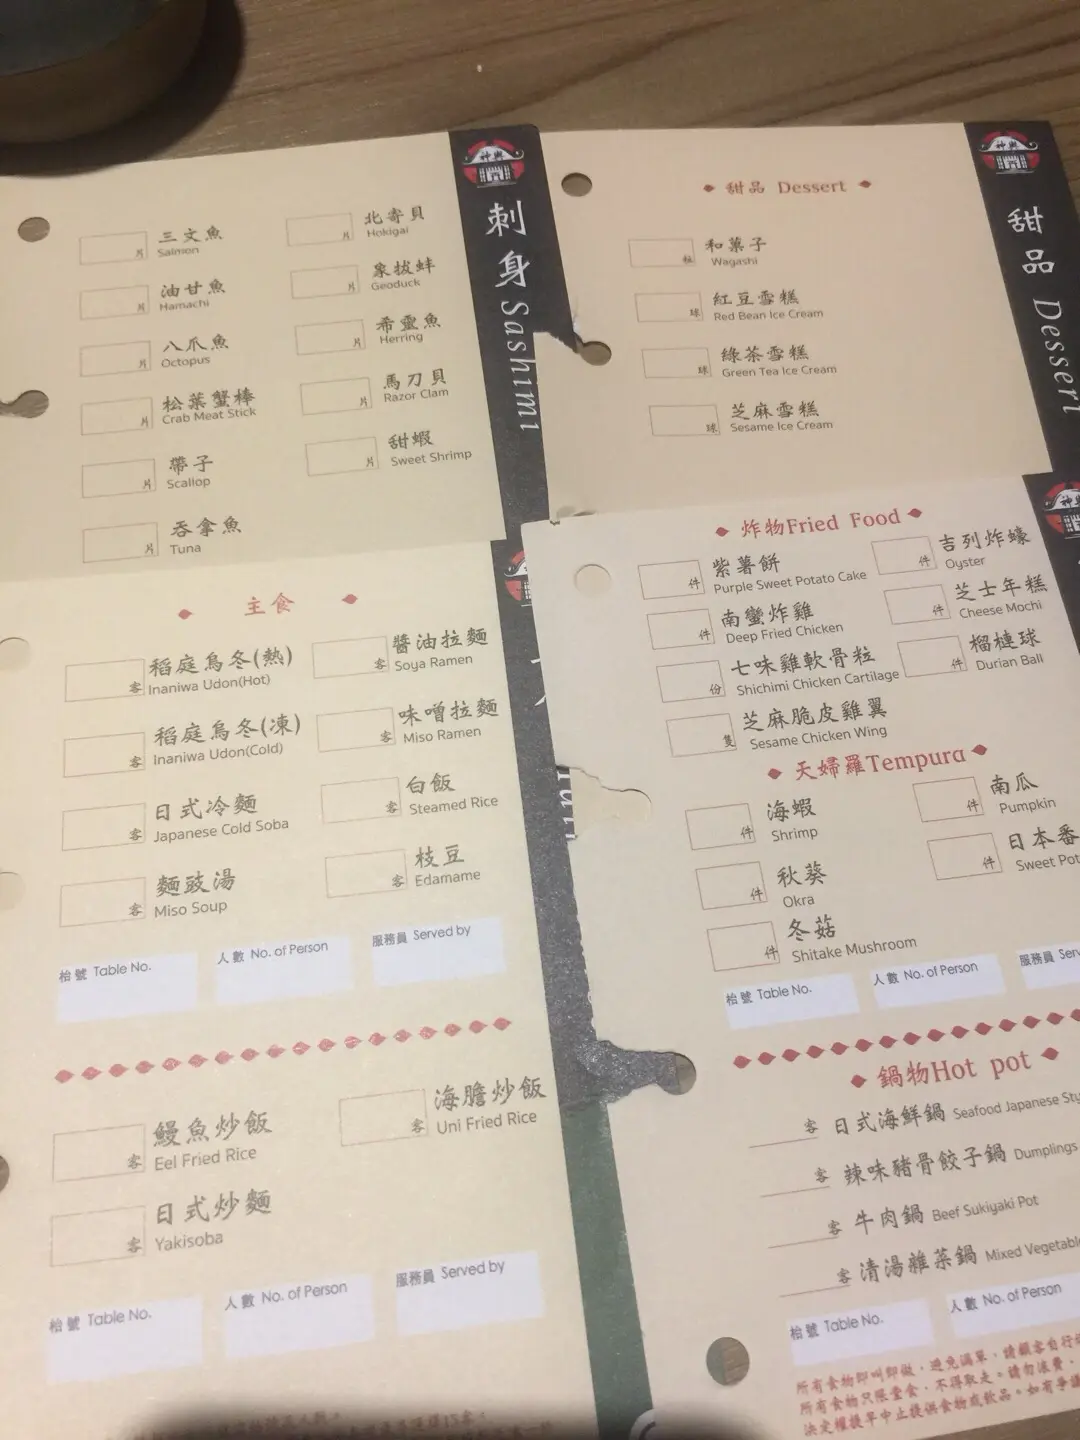 神樂
刺身 Sashimi
片 三文魚
Salmon
片 北寄貝
Hokigai
片 油甘魚
Hamachi
片 象拔蚌
Geoduck
片 八爪魚
Octopus
片 希靈魚
Herring
片 松葉蟹棒
Crab Meat Stick
片 馬刀貝
Razor Clam
片 帶子
Scallop
片 甜蝦
Sweet Shrimp
片 吞拿魚
Tuna
神樂
甜品 Dessert
甜品 Dessert
粒 和菓子
Wagashi
球 紅豆雪糕
Red Bean Ice Cream
球 綠茶雪糕
Green Tea Ice Cream
球 芝麻雪糕
Sesame Ice Cream
主食
客 稻庭烏冬(熱)
Inaniwa Udon(Hot)
客 醬油拉麵
Soya Ramen
客 稻庭烏冬(凍)
Inaniwa Udon(Cold)
客 味噌拉麵
Miso Ramen
客 日式冷麵
Japanese Cold Soba
客 白飯
Steamed Rice
客 麵豉湯
Miso Soup
客 枝豆
Edamame
枱號 Table No.
人數 No. of Person
服務員 Served by
客 鰻魚炒飯
Eel Fried Rice
客 海膽炒飯
Uni Fried Rice
客 日式炒麵
Yakisoba
枱號 Table No.
人數 No. of Person
服務員 Served by
炸物Fried Food
件 紫薯餅
Purple Sweet Potato Cake
件 吉列炸蠔
Oyster
件 南蠻炸雞
Deep Fried Chicken
件 芝士年糕
Cheese Mochi
份 七味雞軟骨粒
Shichimi Chicken Cartilage
件 榴槤球
Durian Ball
隻 芝麻脆皮雞翼
Sesame Chicken Wing
天婦羅Tempura
件 海蝦
Shrimp
件 南瓜
Pumpkin
件 秋葵
Okra
件 日本番
Sweet Pot
件 冬菇
Shitake Mushroom
枱號 Table No.
人數 No. of Person
服務員 Serv
鍋物Hot pot
客 日式海鮮鍋 Seafood Japanese Sty
客 辣味豬骨餃子鍋 Dumplings
客 牛肉鍋 Beef Sukiyaki Pot
客 清湯雜菜鍋 Mixed Vegetable
枱號 Table No.
人數 No. of Person
所有食物即叫即做，避免漏單，請顧客自行
所有食物只限堂食，不得取走。請勿浪費，
決定權提早中止提供食物或飲品。如有爭議